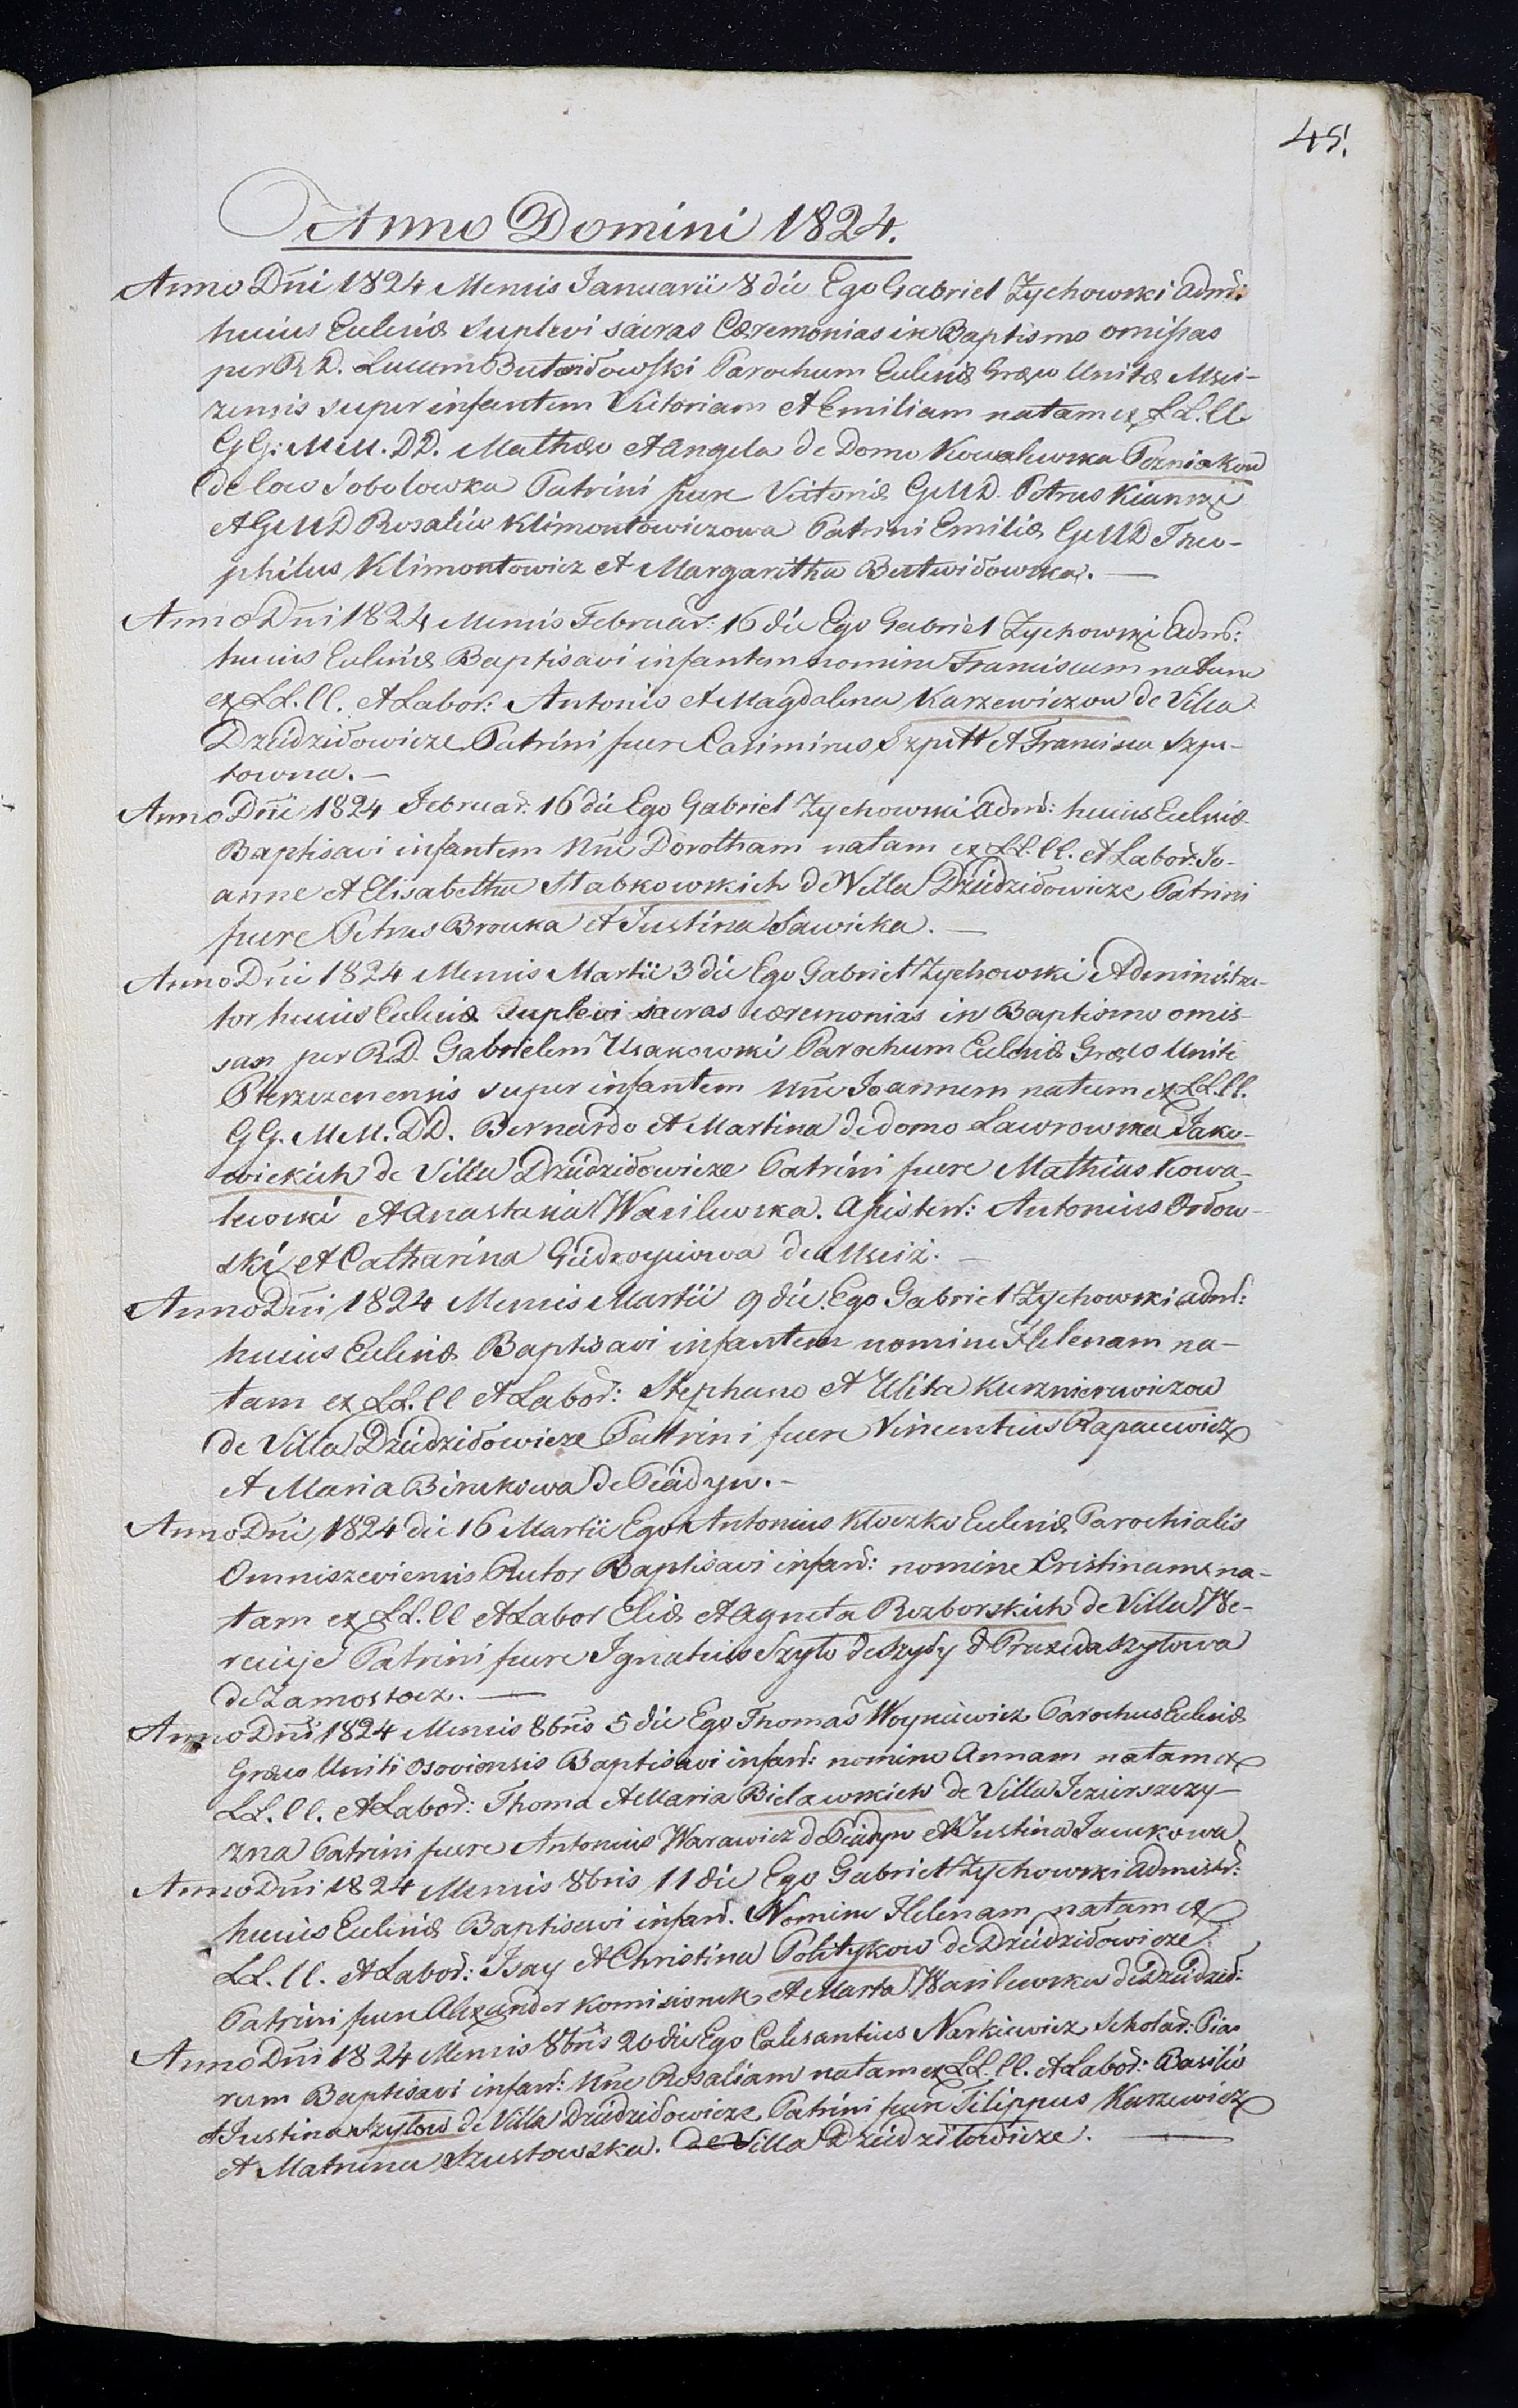 45.
Anno Domini 1824.
Anno Dni 1824 Mensis Januarii 8 die Ego Gabriel Zychowski Admr:
huius Ecclesiæ suplevi sacras Cæremonias in Baptismo omissas
per R D. Lucam Butwidowski Parochum Ecclesiæ Græco Unitæ Msci-
zensis super infantem Victoriam et Emiliam natam ex LL. ll.
GG: MM. DD. Mathæo et Angela de Domo Kowalewska Pozniakow
de loco Sobolowka Patrini fuere Victoriæ GMD. Petrus Kianski
et GMD Rosalia Klimontowiczowa Patrini Emiliæ GMD Theo-
philus Klimontowicz et Margaritha Butwidowska.
Anno Dni 1824 Mensis Februar: 16 die Ego Gabriel Zychowski Admr:
huius Ecclesiæ Baptisavi infantem nomine Franciscum natum
ex LL. ll. et Labor: Antonio et Magdalena Karzewiczow de Villa
Dziedziłowicze Patrini fuere Casimirus Szpitt et Francisca Szpi-
towna.
Anno Dni 1824 Februar. 16 die Ego Gabriel Zychowski Admr: huius Ecclesiæ
Baptisavi infantem Nne Dorotham natam ex LL. ll. et Labor: Jo-
anne et Elisabetha Stabkowskich de Villa Dziedziłowicze Patrini
fuere Petrus Browka et Justina Sawicka.
Anno Dni 1824 Mensis Martii 3 die Ego Gabriel Zychowski Administra-
tor huius Ecclesiæ suplevi sacras cæremonias in Baptismo omis-
sas per RD. Gabrielem Usakowski Parochum Ecclesiæ Græco Unitæ
super infantem Nne Joannem natum ex LL. ll.
GG. MM. DD. Bernardo et Martina de domo Lawrowska Jako-
wickich de Villa Dziedziłowicze Patrini fuere Mathias Kowa-
lewski et Anastasia Wasilewska. Assistent: Antonius Ordow-
ski et Catharina Giedroyciowa de Msciż.
Anno Dni 1824 Mensis Martii 9 die Ego Gabriel Zychowski Admr:
huius Ecclesiæ Baptisavi infantem nomine Helenam na-
tam ex LL. ll et Labor: Stephano et Ulita Kuzniercwiczow
de Villa Dziedziłowicze Patrini fuere Vincentius Rapacewicz
et Maria Birukowa de Piadyn.
Anno Dni 1824 die 16 Martii Ego Antonius Kłoczko Ecclesiæ Parochialis
Omniszeviensis Rector Baptisavi infan: nomine Cristinam na-
tam ex LL. ll et Labor Eliæ et Agneta Rozborskich de Villa We-
Patrini fuere Ignatius Szyło de Szyły et Praxeda Szyłowa
de Zamostocz.
Anno Dni 1824 Mensis 8bris 5 die Ego Thomas Woyniewicz Parochus Ecclesiæ
Græco Uniti Osoviensis Baptisavi infan: nomine Annam natam ex
LL. ll. et Labor: Thoma et Maria Bielawskich de Villa Jezierszczy-
zna Patrini fuere Antonius Warawicz de Piadyn et Justina Jackowa
Anno Dni 1824 Mensis 8bris 11 die Ego Gabriel Zychowski Admistr:
huius Ecclesiæ Baptisavi infan. Nomine Helenam natam ex
LL. ll. et Labor: Isay et Christina Politykow de Dziedziłowicze
Patrini fuere Alexander Komisionek et Marta Wasilewska de Dziedził:
Anno Dni 1824 Mensis 8bris 20 die Ego Calasantius Narkiewicz Scholar: Pia-
rum Baptisavi infan: Nne Rosaliam natam ex LL. ll. et Labor: Basilio
et Justina Szyłow de Villa Dziedziłowicze Patrini fuere Filippus Karzewicz
et Matruna Szustowska. de Villa Dziedziłowicze.